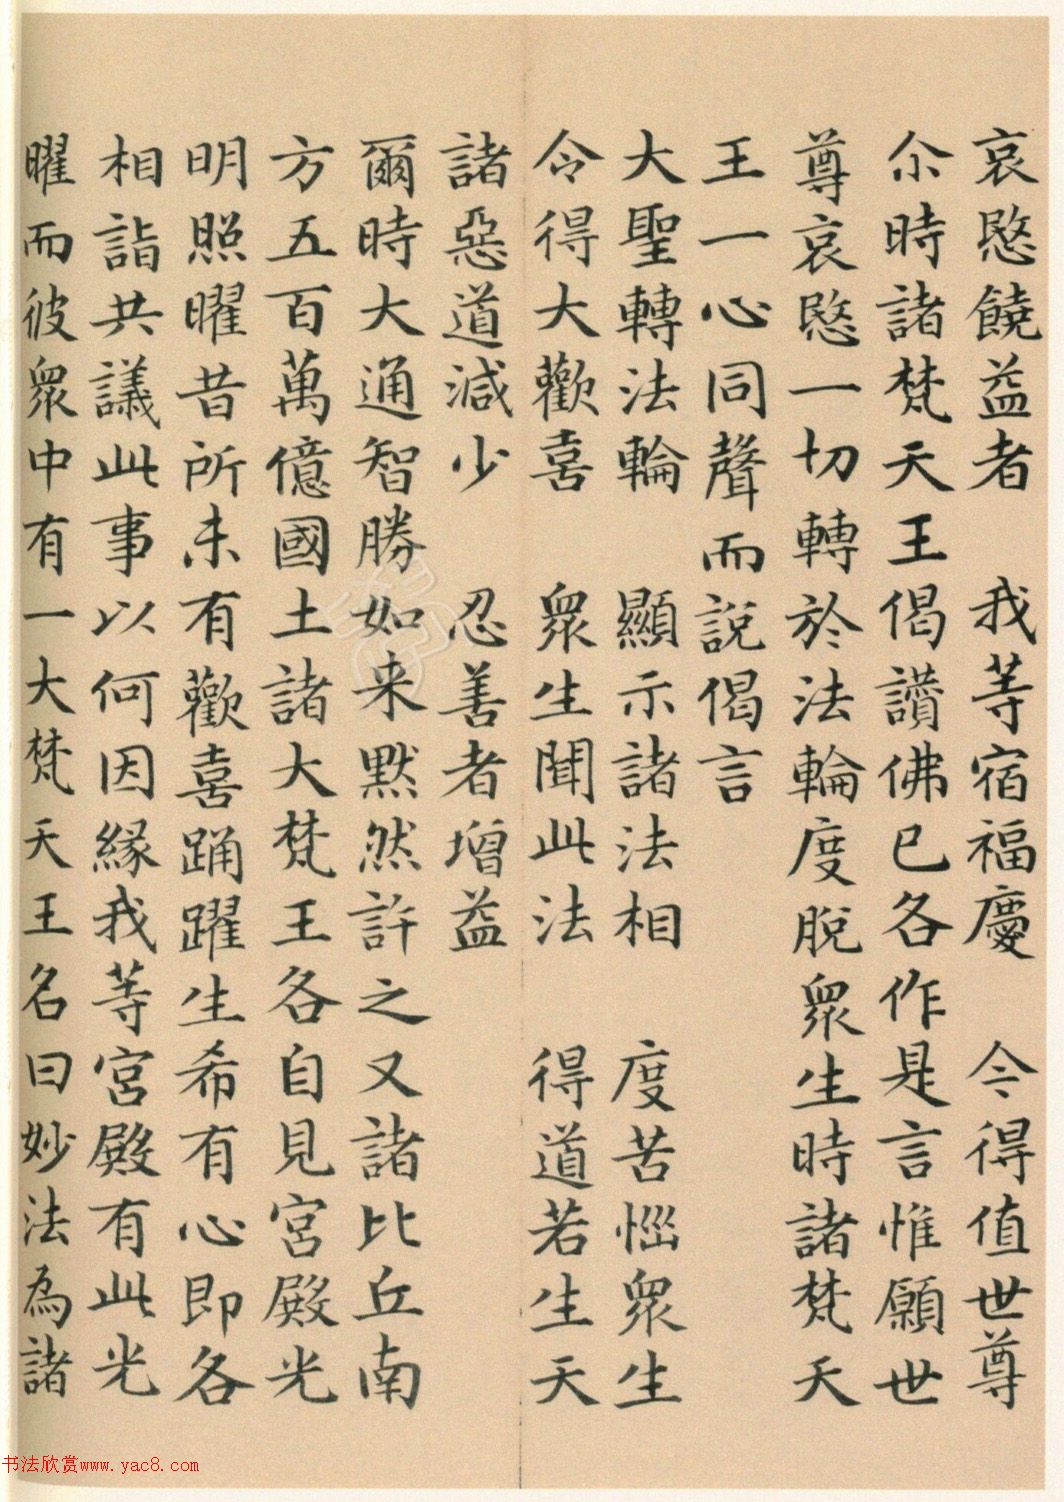 哀愍饒益者　我等宿福慶　今得值世尊
尒時諸梵天王偈讚佛已各作是言惟願世
尊哀愍一切轉於法輪度脫眾生時諸梵天
王一心同聲而說偈言
大聖轉法輪　顯示諸法相　度苦惱眾生
令得大歡喜　眾生聞此法　得道若生天
諸惡道減少　忍善者增益
爾時大通智勝如来默然許之又諸比丘南
方五百萬億國土諸大梵王各自見宮殿光
明照曜昔所未有歡喜踊躍生希有心即各
相詣共議此事以何因緣我等宮殿有此光
曜而彼眾中有一大梵天王名曰妙法為諸
书法欣赏www.yac8.com